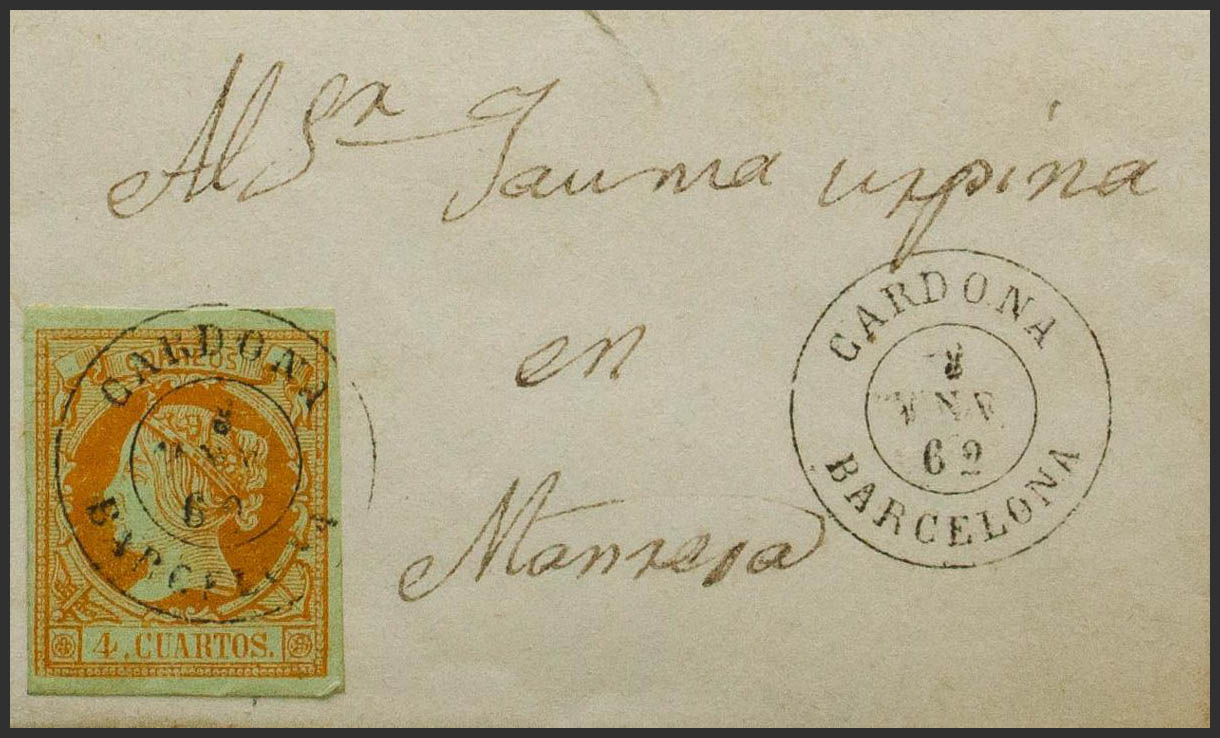 Al Sr Jauma urpina
en
Manresa
CORREOS
4 CUARTOS.
CARDONA
6 2
BARCELONA
CARDONA
ENE
62
BARCELONA